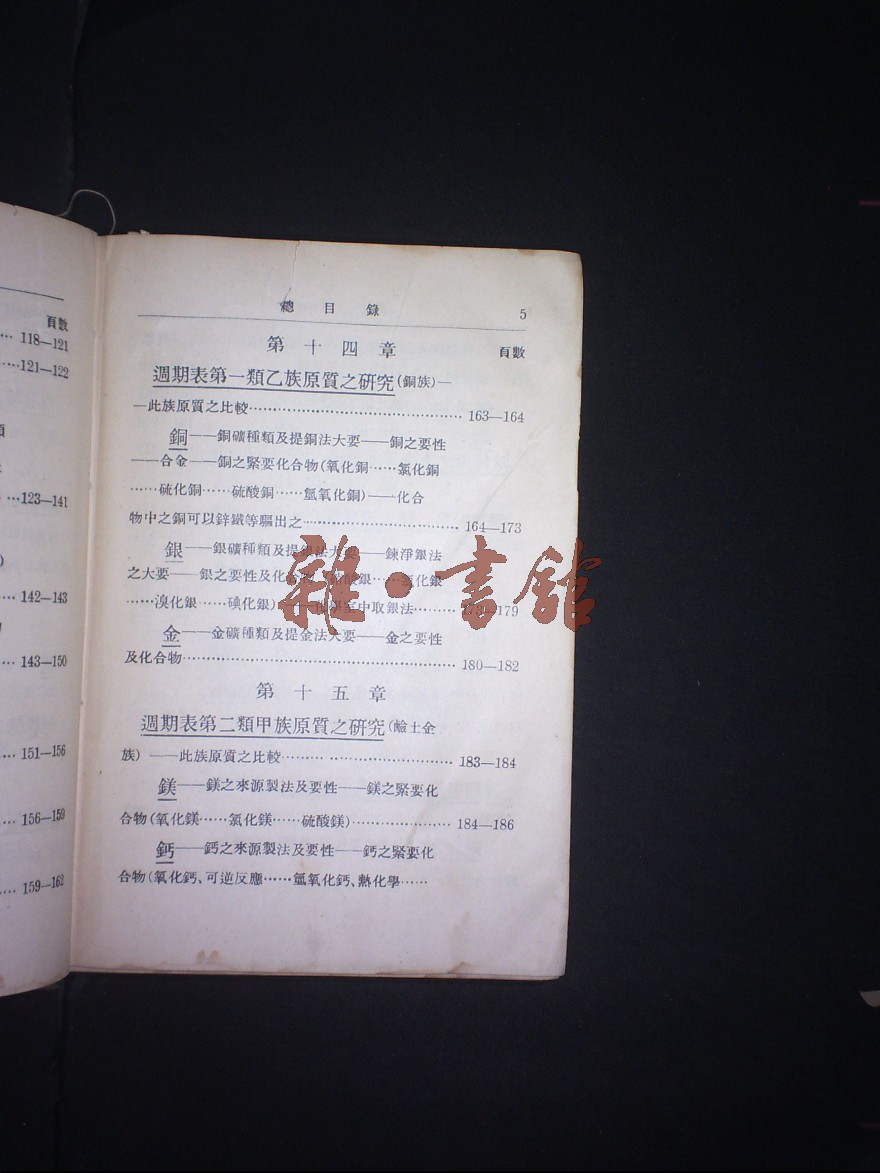 頁數
118—121
121—122
123—141
142—143
143—150
151—156
156—159
159—162
總目錄 5
第十四章 頁數
週期表第一類乙族原質之研究(銅族)—
—此族原質之比較……………………………… 163—164
銅——銅礦種類及提銅法大要——銅之要性
——合金——銅之緊要化合物(氧化銅……氯化銅
……硫化銅……硫酸銅……氫氧化銅)——化合
物中之銅可以鋅鐵等驅出之………………………… 164—173
銀——銀礦種類及提銀法大要——鍊淨銀法
之大要——銀之要性及化合物 銀……氯化銀
……溴化銀……碘化銀)—— 中取銀法……… 179
金——金礦種類及提金法大要——金之要性
及化合物……………………………………… 180—182
第十五章
週期表第二類甲族原質之研究(鹼土金
族)——此族原質之比較………………………… 183—184
鎂——鎂之來源製法及要性——鎂之緊要化
合物(氧化鎂……氯化鎂……硫酸鎂)………………… 184—186
鈣——鈣之來源製法及要性——鈣之緊要化
合物(氧化鈣、可逆反應……氫氧化鈣、熱化學……
雜·書館